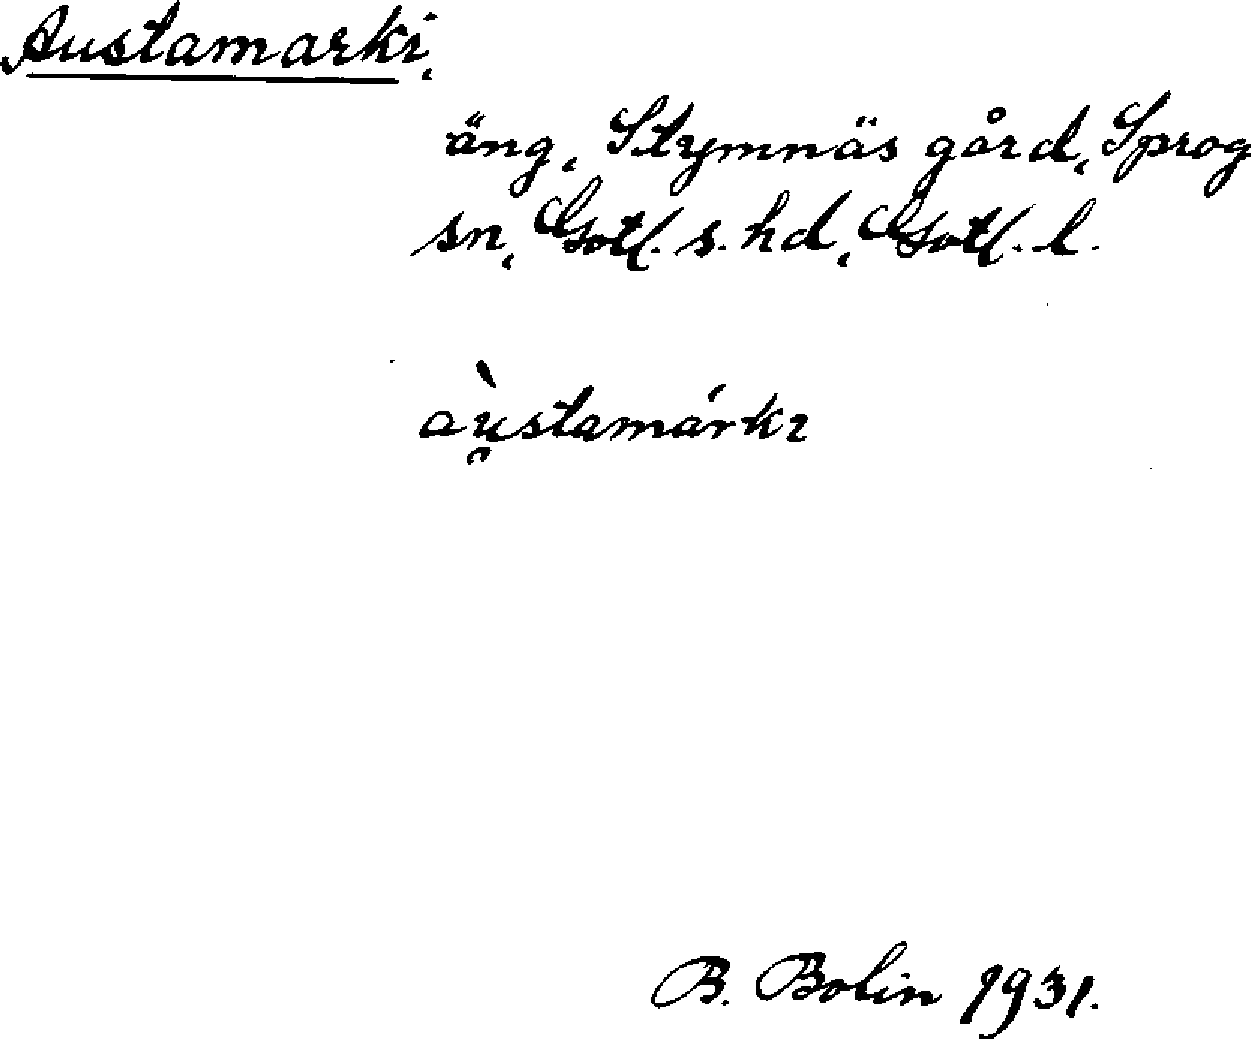 Austamarki,
äng, Stymnäs gård, Sprog
sn, Gotl. s. hd, Gotl. l.
aù̯stamárkı
B. Bolin 1931.